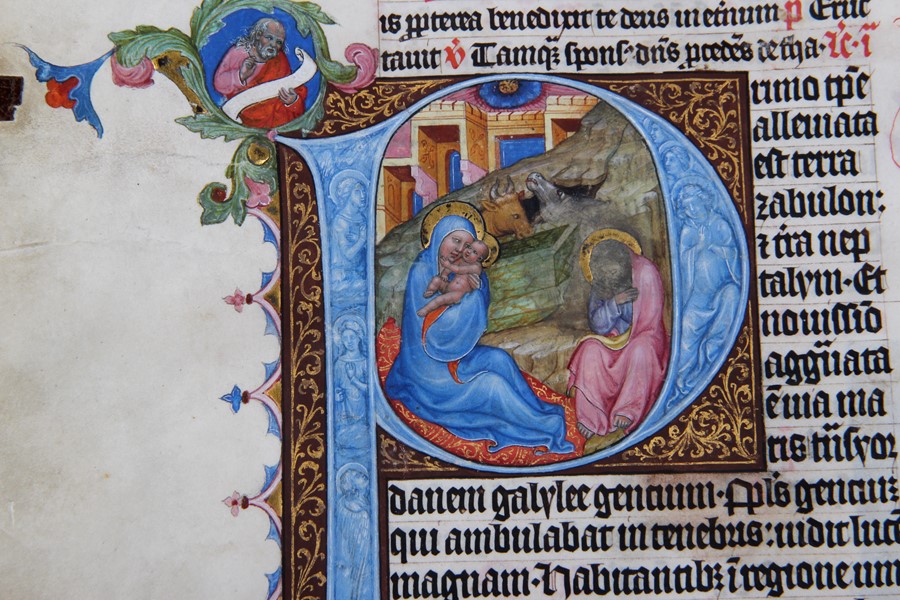 is ꝓpterea benedixit te deus in et̄num p Eruc
tauit ℣ Tamqȝ spons⁹ dn̄s ꝓcedēs de tha.
rimo tꝑe
alleuiata
est terra
zabulon:
⁊ tr̄a nep
talym. Et
nouissīo
aggͣuata
ē uia ma
ris trās yor
danem galylee gencium. Ppl̄s genciuȝ
qui ambulabat in tenebris: uidit lucē
magnam. Habitantibȝ ī regione um